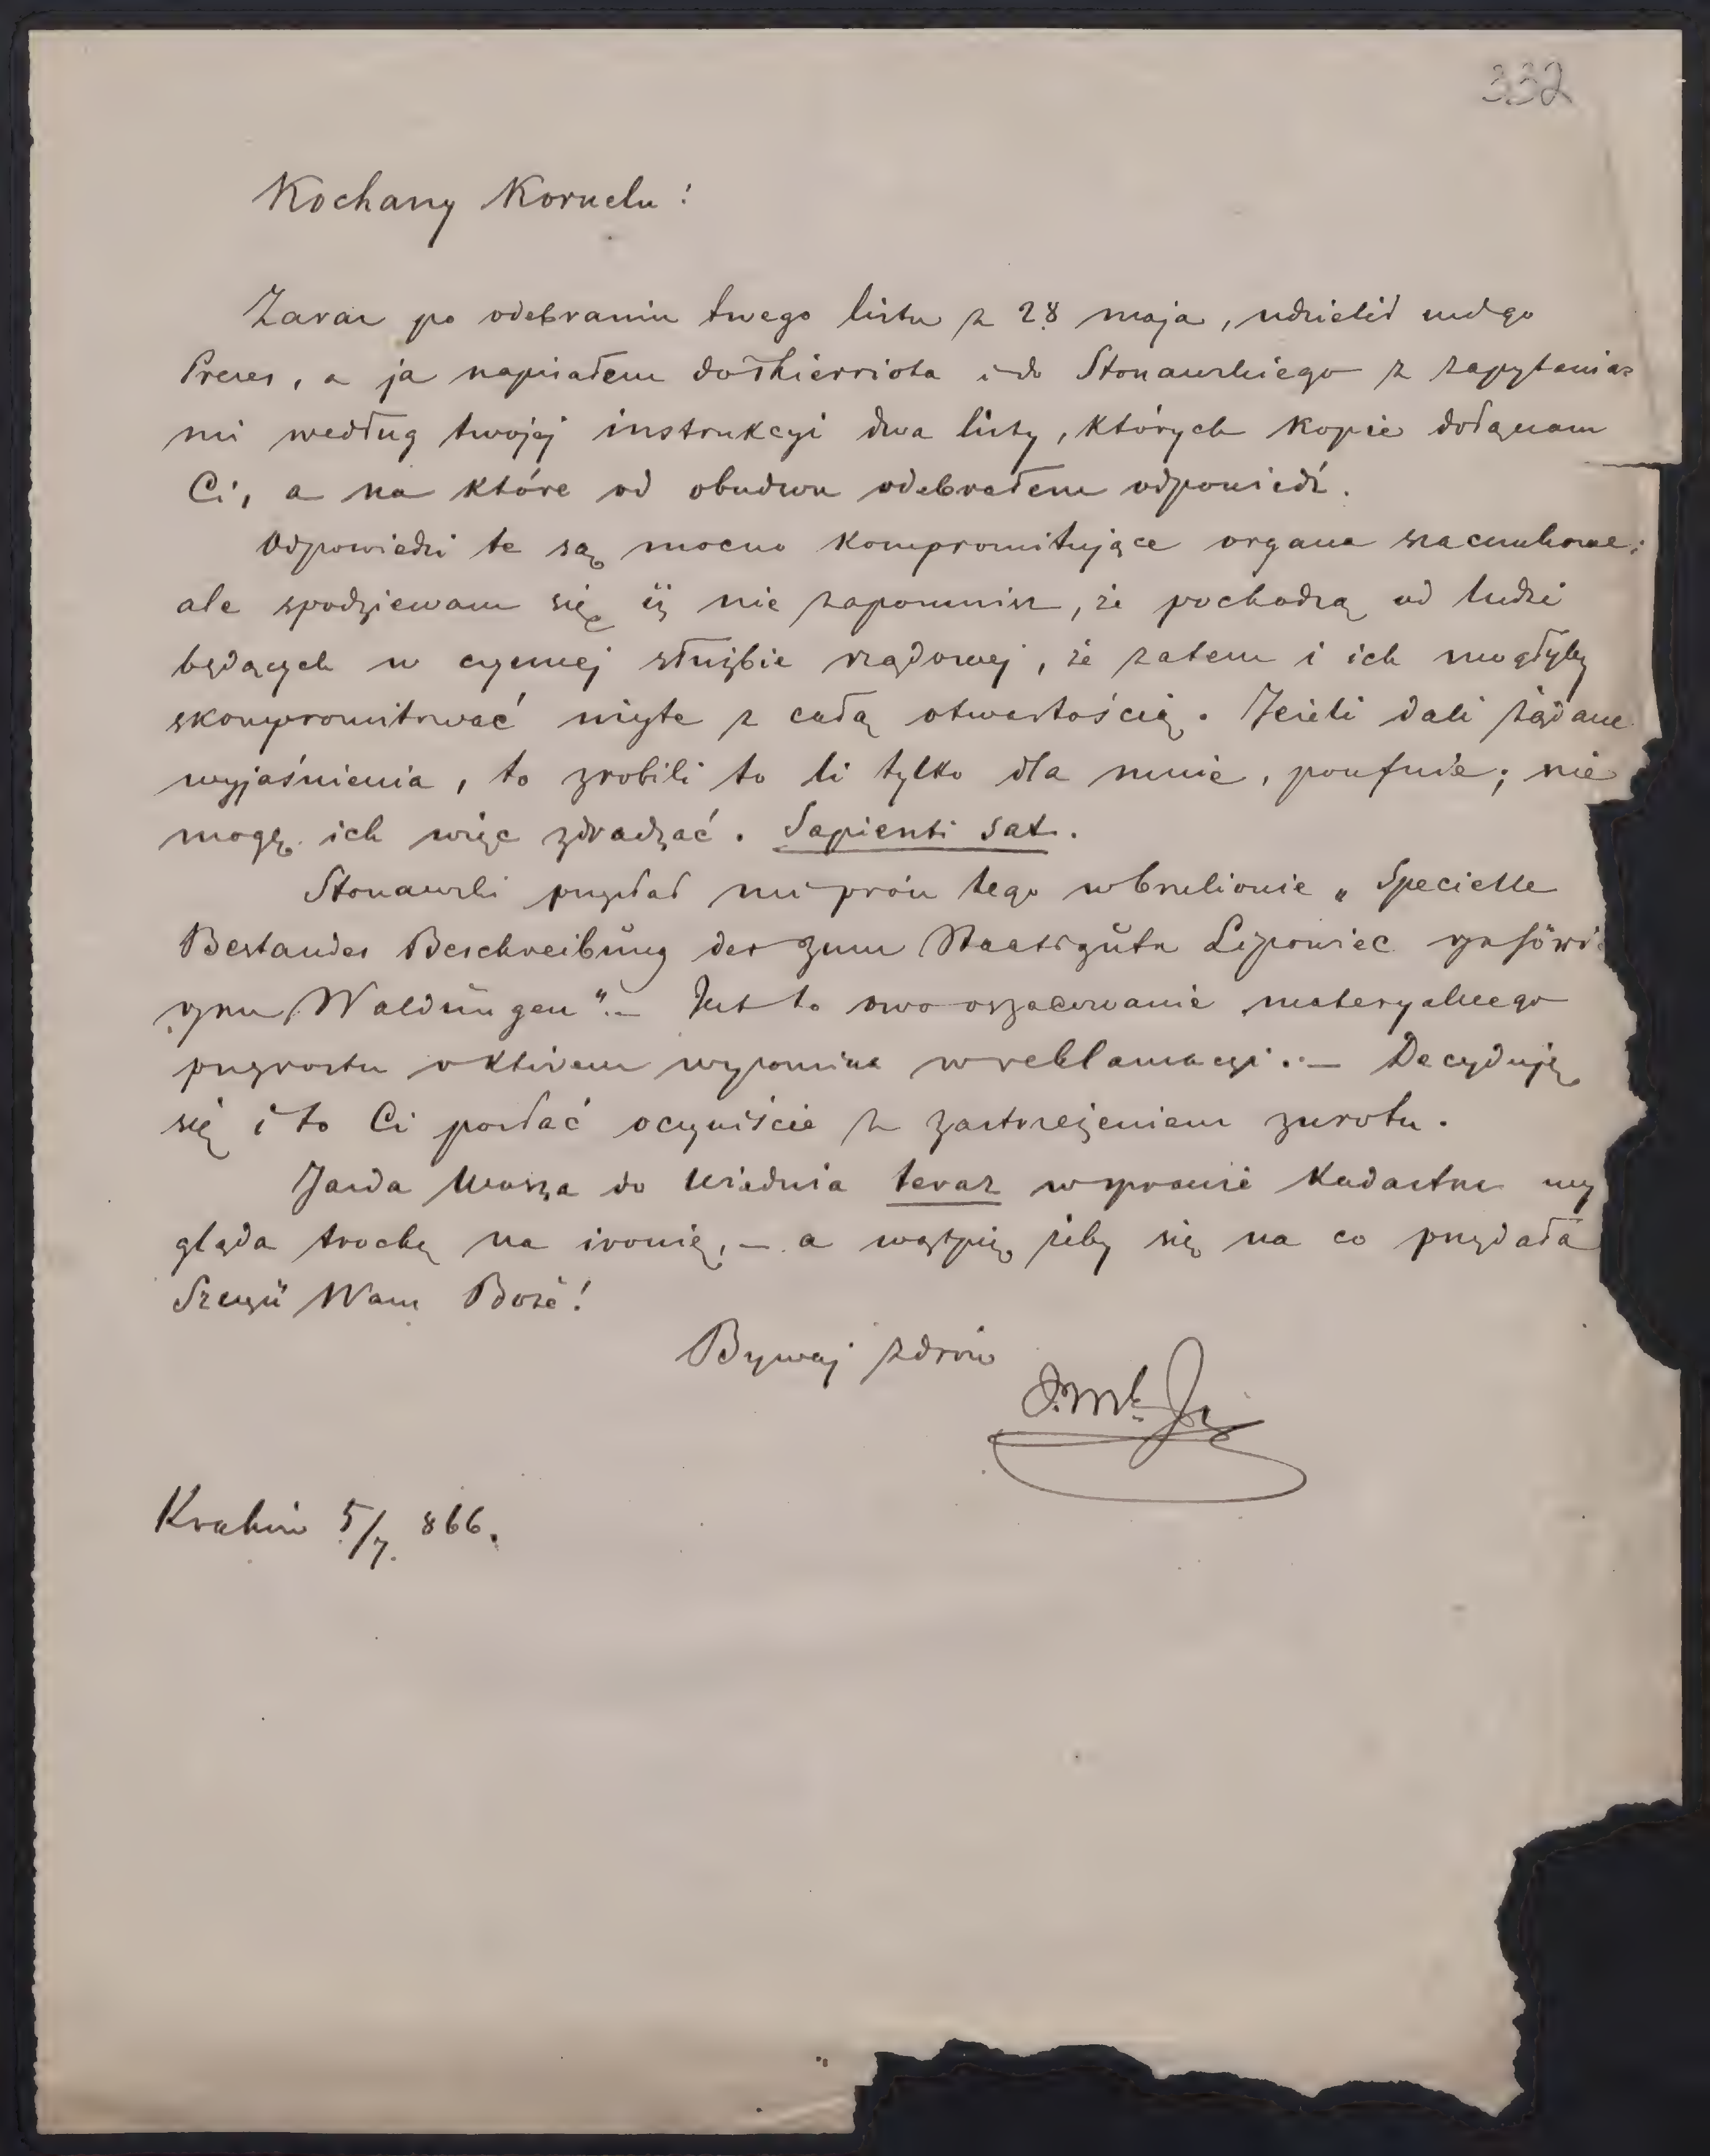 332
Kochany Kornelu!
Zaraz po odebraniu twego listu z 28 maja, udzielił mi go
Prezes, a ja napisałem do Thierriota i do Stonawskiego z zapytania=
mi według twojej instrukcyi dwa listy, których kopie dołączam
Ci, a na które od obudwu odebrałem odpowiedź.
Odpowiedzi te są mocno kompromitujące organa szacunkowe;
ale spodziewam się iż nie zapomnisz, że pochodzą od ludzi
będących w czynnej służbie rządowej, że zatem i ich mogłyby
skompromitować użyte z całą otwartością. Jeżeli dali żądane
wyjaśnienia, to zrobili to li tylko dla mnie, poufnie; nie
mogę ich więc zdradzać. Sapienti sat.
Stonawski przysłał mi prócz tego w brulionie „Specielle
Bestandes Beschreibung der zum Staatsgute Lipowiec gehöri
gen Waldungen". – Jest to owo oszacowanie materyalnego
przyrostu o którem wspomina w reklamacyi. – Decyduję
się i to Ci posłać oczywiście z zastrzeżeniem zwrotu.
Jazda Wasza do Wiednia teraz w sprawie Kadastru wy
gląda trochę na ironię, – a wątpię żeby się na co przydała
Szczęść Wam Boże!
Bywaj zdrów
Kraków 5/7. 866.